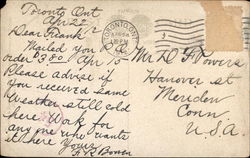 Toronto Ont
Apr 22
Dear Frank
Mailed you
order $3.80 Apr 15
Please advise if
you received same
Weather still cold
here Work for
any one who wants
it here Yours
TORONTO, ONT
Mr D F Powers
Hanover st
Meriden
Conn
U.S.A